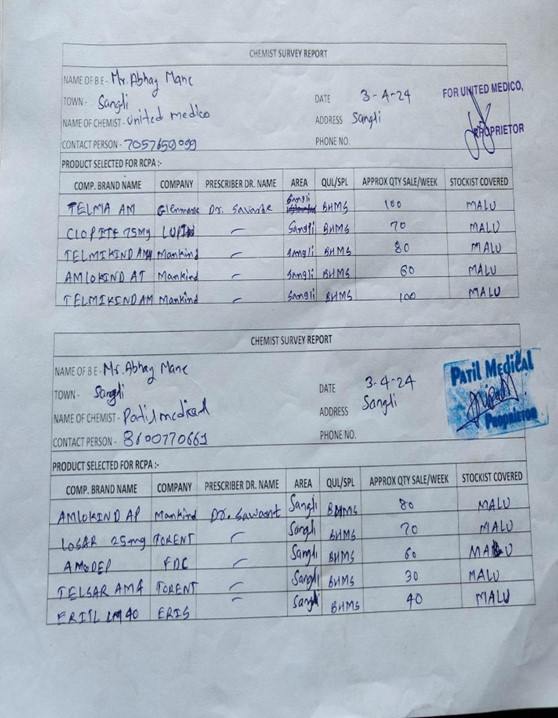 CHEMIST SURVEY REPORT
NAME OF B E - Mr. Abhay Mane
TOWN - Sangli
DATE 3-4-24
FOR UNITED MEDICO,
NAME OF CHEMIST - United medico
ADDRESS Sangli
PROPRIETOR
CONTACT PERSON - 7057659099
PHONE NO.
PRODUCT SELECTED FOR RCPA :-
COMP. BRAND NAME COMPANY PRESCRIBER DR. NAME AREA QUL/SPL APPROX QTY SALE/WEEK STOCKIST COVERED
TELMA AM Glenmark Dr. Sangli BHMS 100 MALU
CLOPITE 75mg LUPIN Sangli BHMS 70 MALU
TELMIKIND AM Mankind Sangli BHMS 80 MALU
AMLOKIND AT Mankind Sangli BHMS 60 MALU
TELMIKIND AM Mankind Sangli BHMS 100 MALU
CHEMIST SURVEY REPORT
NAME OF B E - Mr. Abhay Mane
TOWN - Sangli
DATE 3-4-24
PATIL MEDICAL
NAME OF CHEMIST - Patil medical
ADDRESS Sangli
Proprietor
CONTACT PERSON - 8600770661
PHONE NO.
PRODUCT SELECTED FOR RCPA :-
COMP. BRAND NAME COMPANY PRESCRIBER DR. NAME AREA QUL/SPL APPROX QTY SALE/WEEK STOCKIST COVERED
AMLOKIND AP Mankind Dr. Sawant Sangli BHMS 80 MALU
LOSAR 25mg TORENT Sangli BHMS 70 MALU
AMODEP FDC Sangli BHMS 60 MALU
TELSAR AM4 TORENT Sangli BHMS 30 MALU
ERITL LM 40 ERIS Sangli BHMS 40 MALU